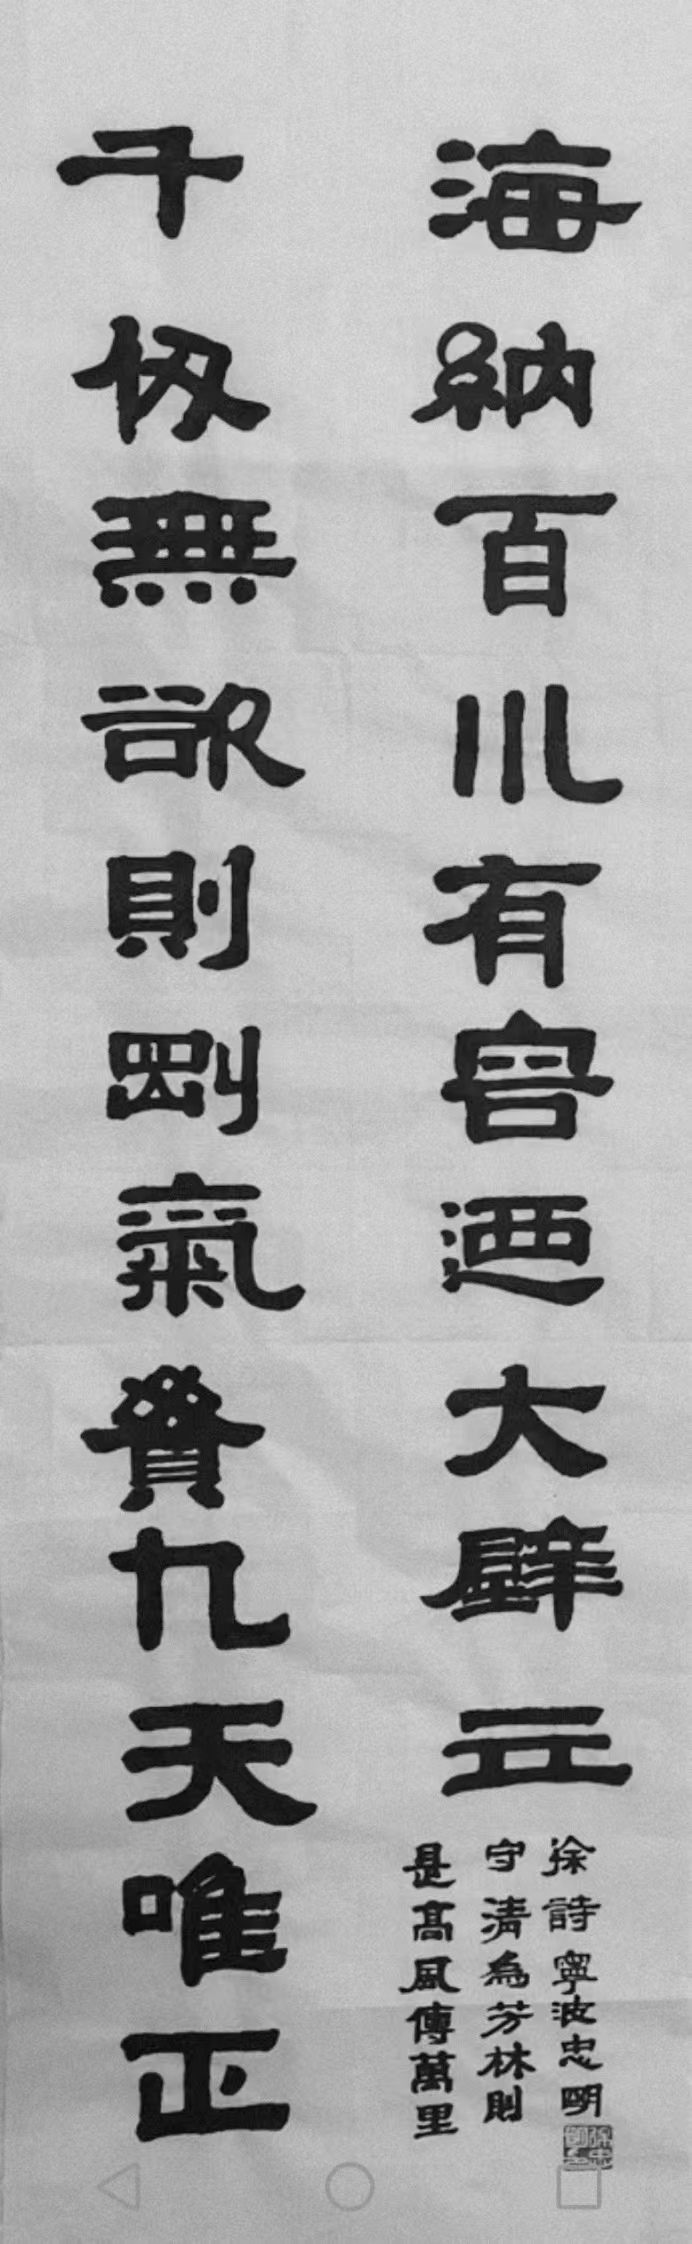 海納百川有容迺大壁立
千仞無欲則剛氣貫九天唯正
是高風傳萬里
守清為芳林則
徐詩寧波忠明